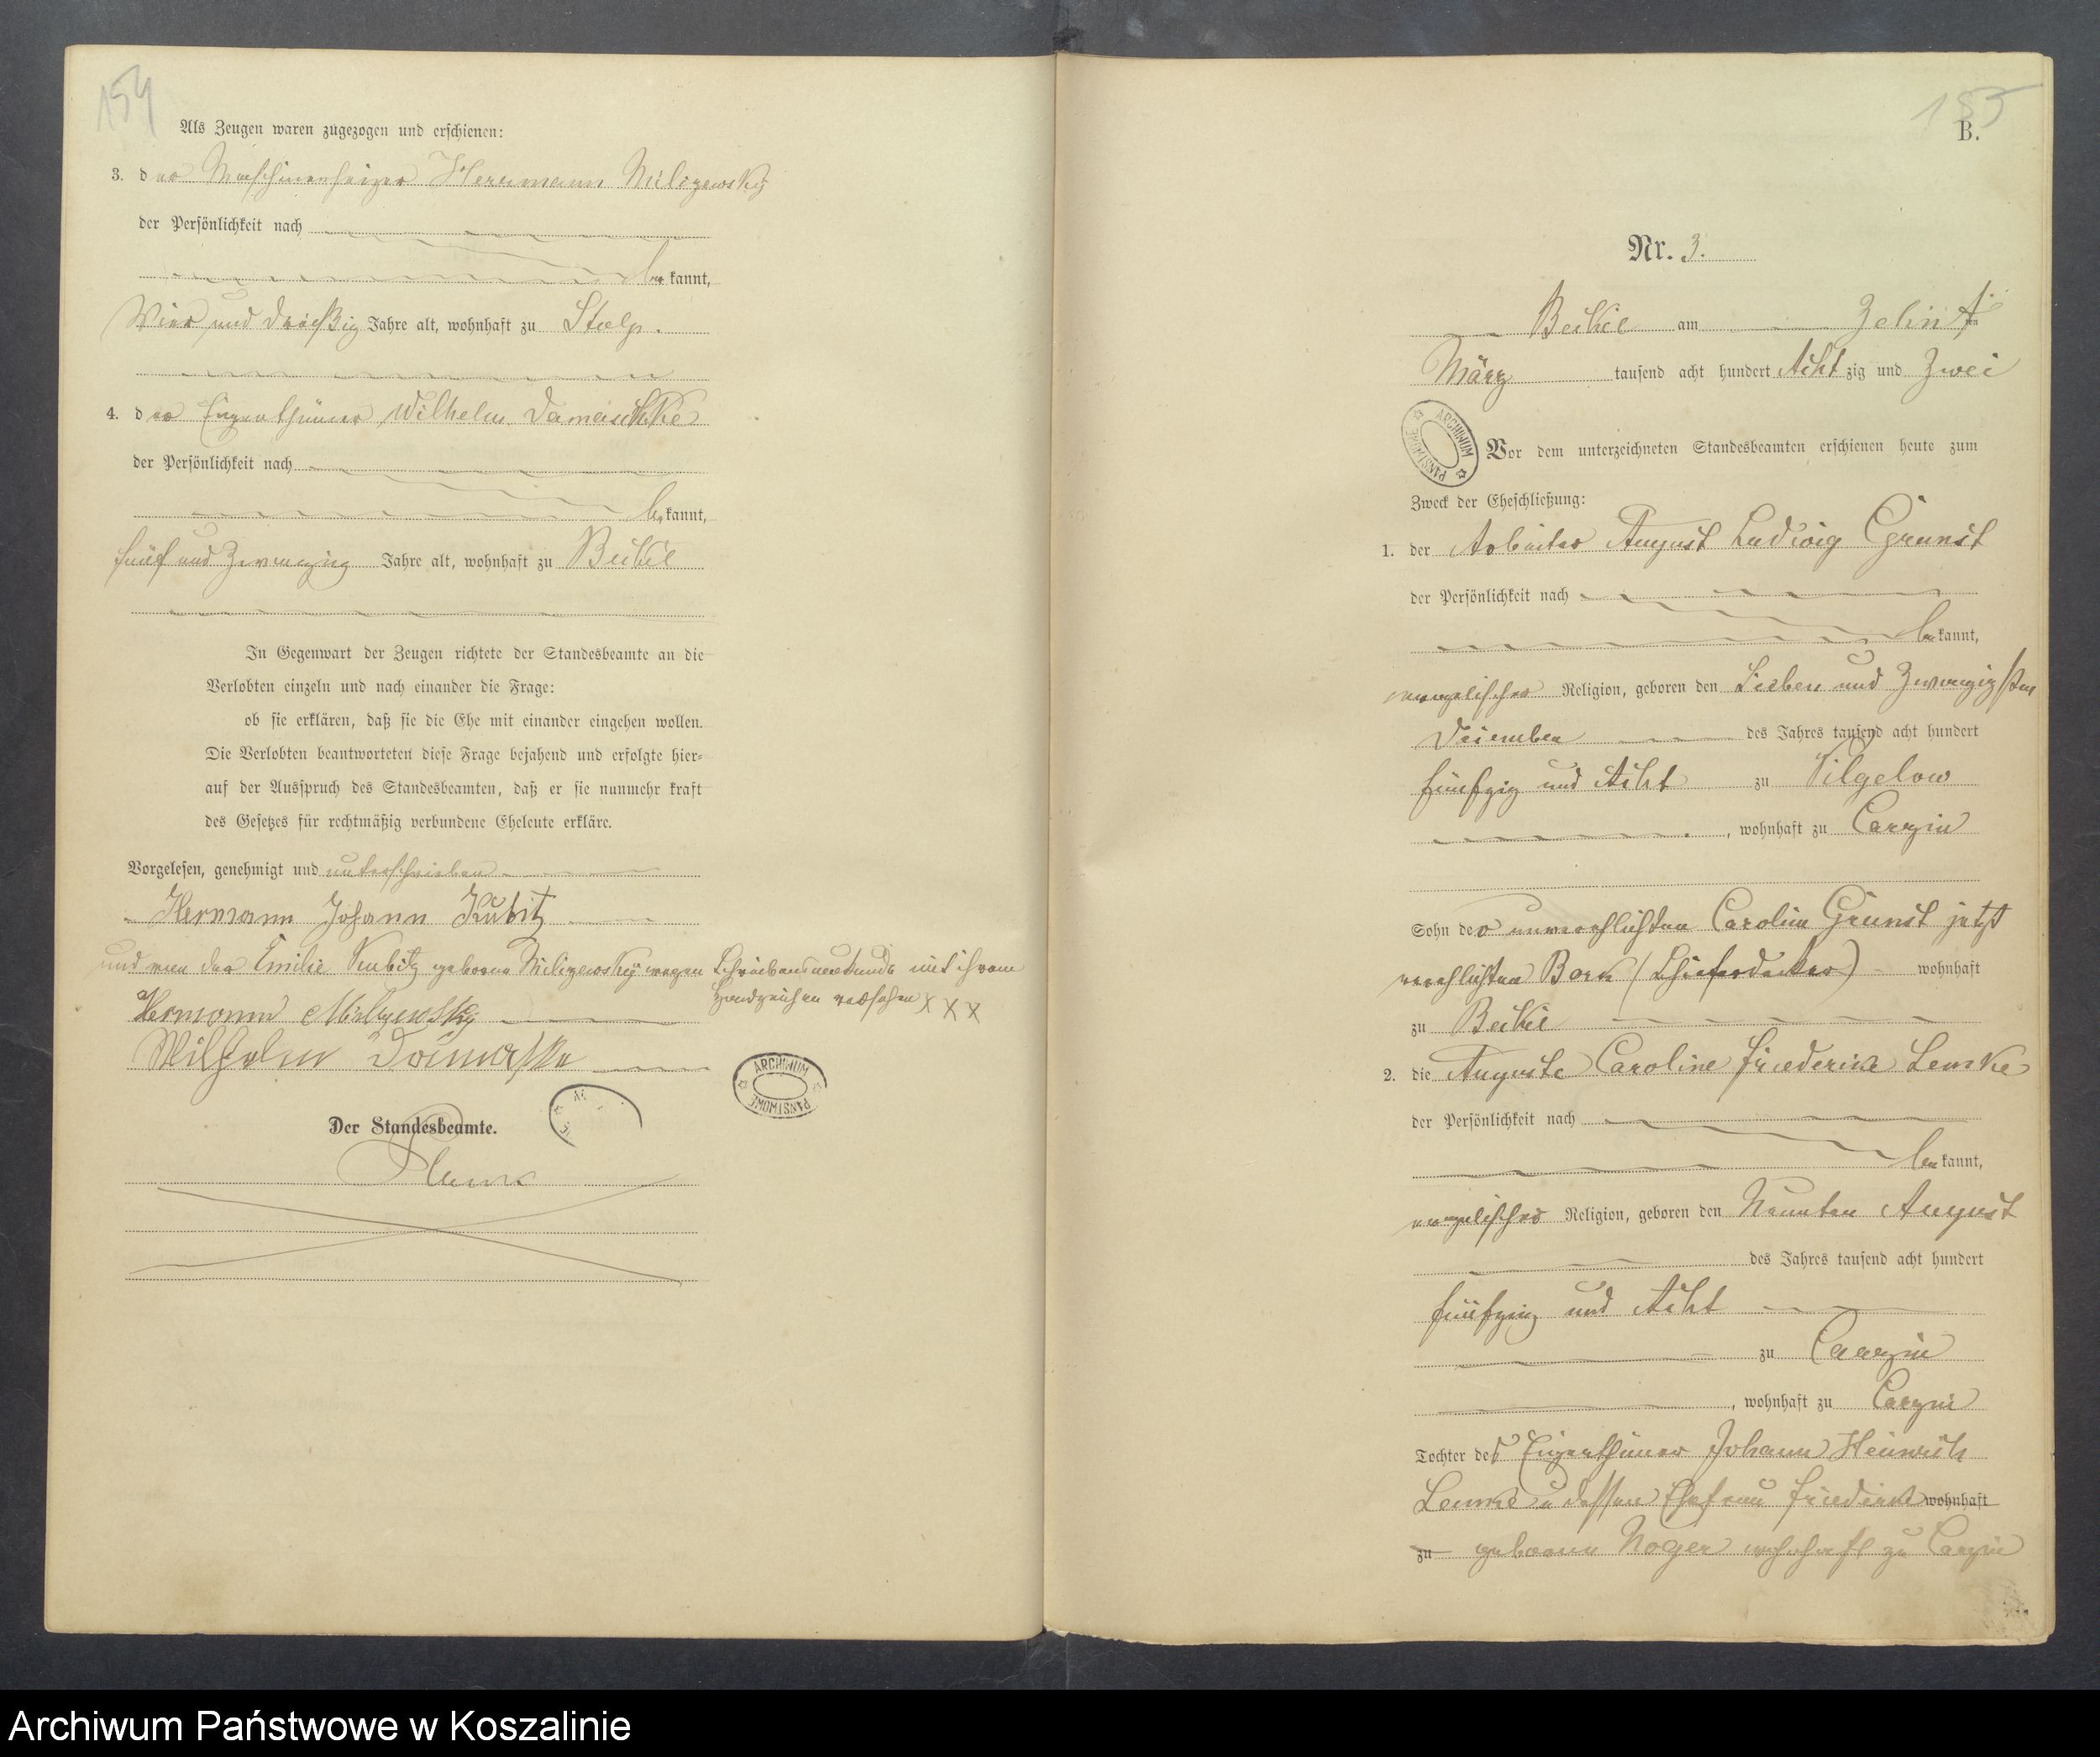 154
Als Zeugen waren zugezogen und erschienen:
3. der Maschinenheizer Herrmann Milizewsky
der Persönlichkeit nach
be kannt,
Vier und dreißig Jahre alt, wohnhaft zu Stolp.
4. der Eigenthümer Wilhelm Damaschke
der Persönlichkeit nach
be kannt,
fünf und zwanzig Jahre alt, wohnhaft zu Beckel
In Gegenwart der Zeugen richtete der Standesbeamte an die
Verlobten einzeln und nach einander die Frage:
ob sie erklären, daß sie die Ehe mit einander eingehen wollen.
Die Verlobten beantworteten diese Frage bejahend und erfolgte hier-
auf der Ausspruch des Standesbeamten, daß er sie nunmehr kraft
des Gesetzes für rechtmäßig verbundene Eheleute erkläre.
Vorgelesen, genehmigt und unterschrieben
Hermann Johann Kubitz
und von der Emilie Kubitz geborne Milizewsky wegen Schreibensunkunde mit ihrem
Handzeichen versehen XXX
Hermann Milizewsky
Wilhelm Damaschke
ARCHIWUM PAŃSTWOWE
Der Standesbeamte.
155
B.
Nr. 3.
Beckel am Zehnten
März tausend acht hundert Acht zig und Zwei
ARCHIWUM PAŃSTWOWE
Vor dem unterzeichneten Standesbeamten erschienen heute zum
Zweck der Eheschließung:
1. der Arbeiter August Ludwig Grunst
der Persönlichkeit nach
be kannt,
evangelischer Religion, geboren den Sieben und Zwanzigsten
December des Jahres tausend acht hundert
fünfzig und Acht zu Vilgelow
, wohnhaft zu Carzin
Sohn der unverehlichten Caroline Grunst jetzt
verehlichten Bork (Schieferdecker) wohnhaft
zu Beckel
2. die Auguste Caroline Friederike Lemke
der Persönlichkeit nach
be kannt,
evangelischer Religion, geboren den Neunten August
des Jahres tausend acht hundert
fünfzig und Acht
zu Carzin
, wohnhaft zu Carzin
Tochter des Eigenthümer Johann Heinrich
Lemke u dessen Ehefrau Friederike wohnhaft
zu geborne Noger wohnhaft zu Carzin
Archiwum Państwowe w Koszalinie